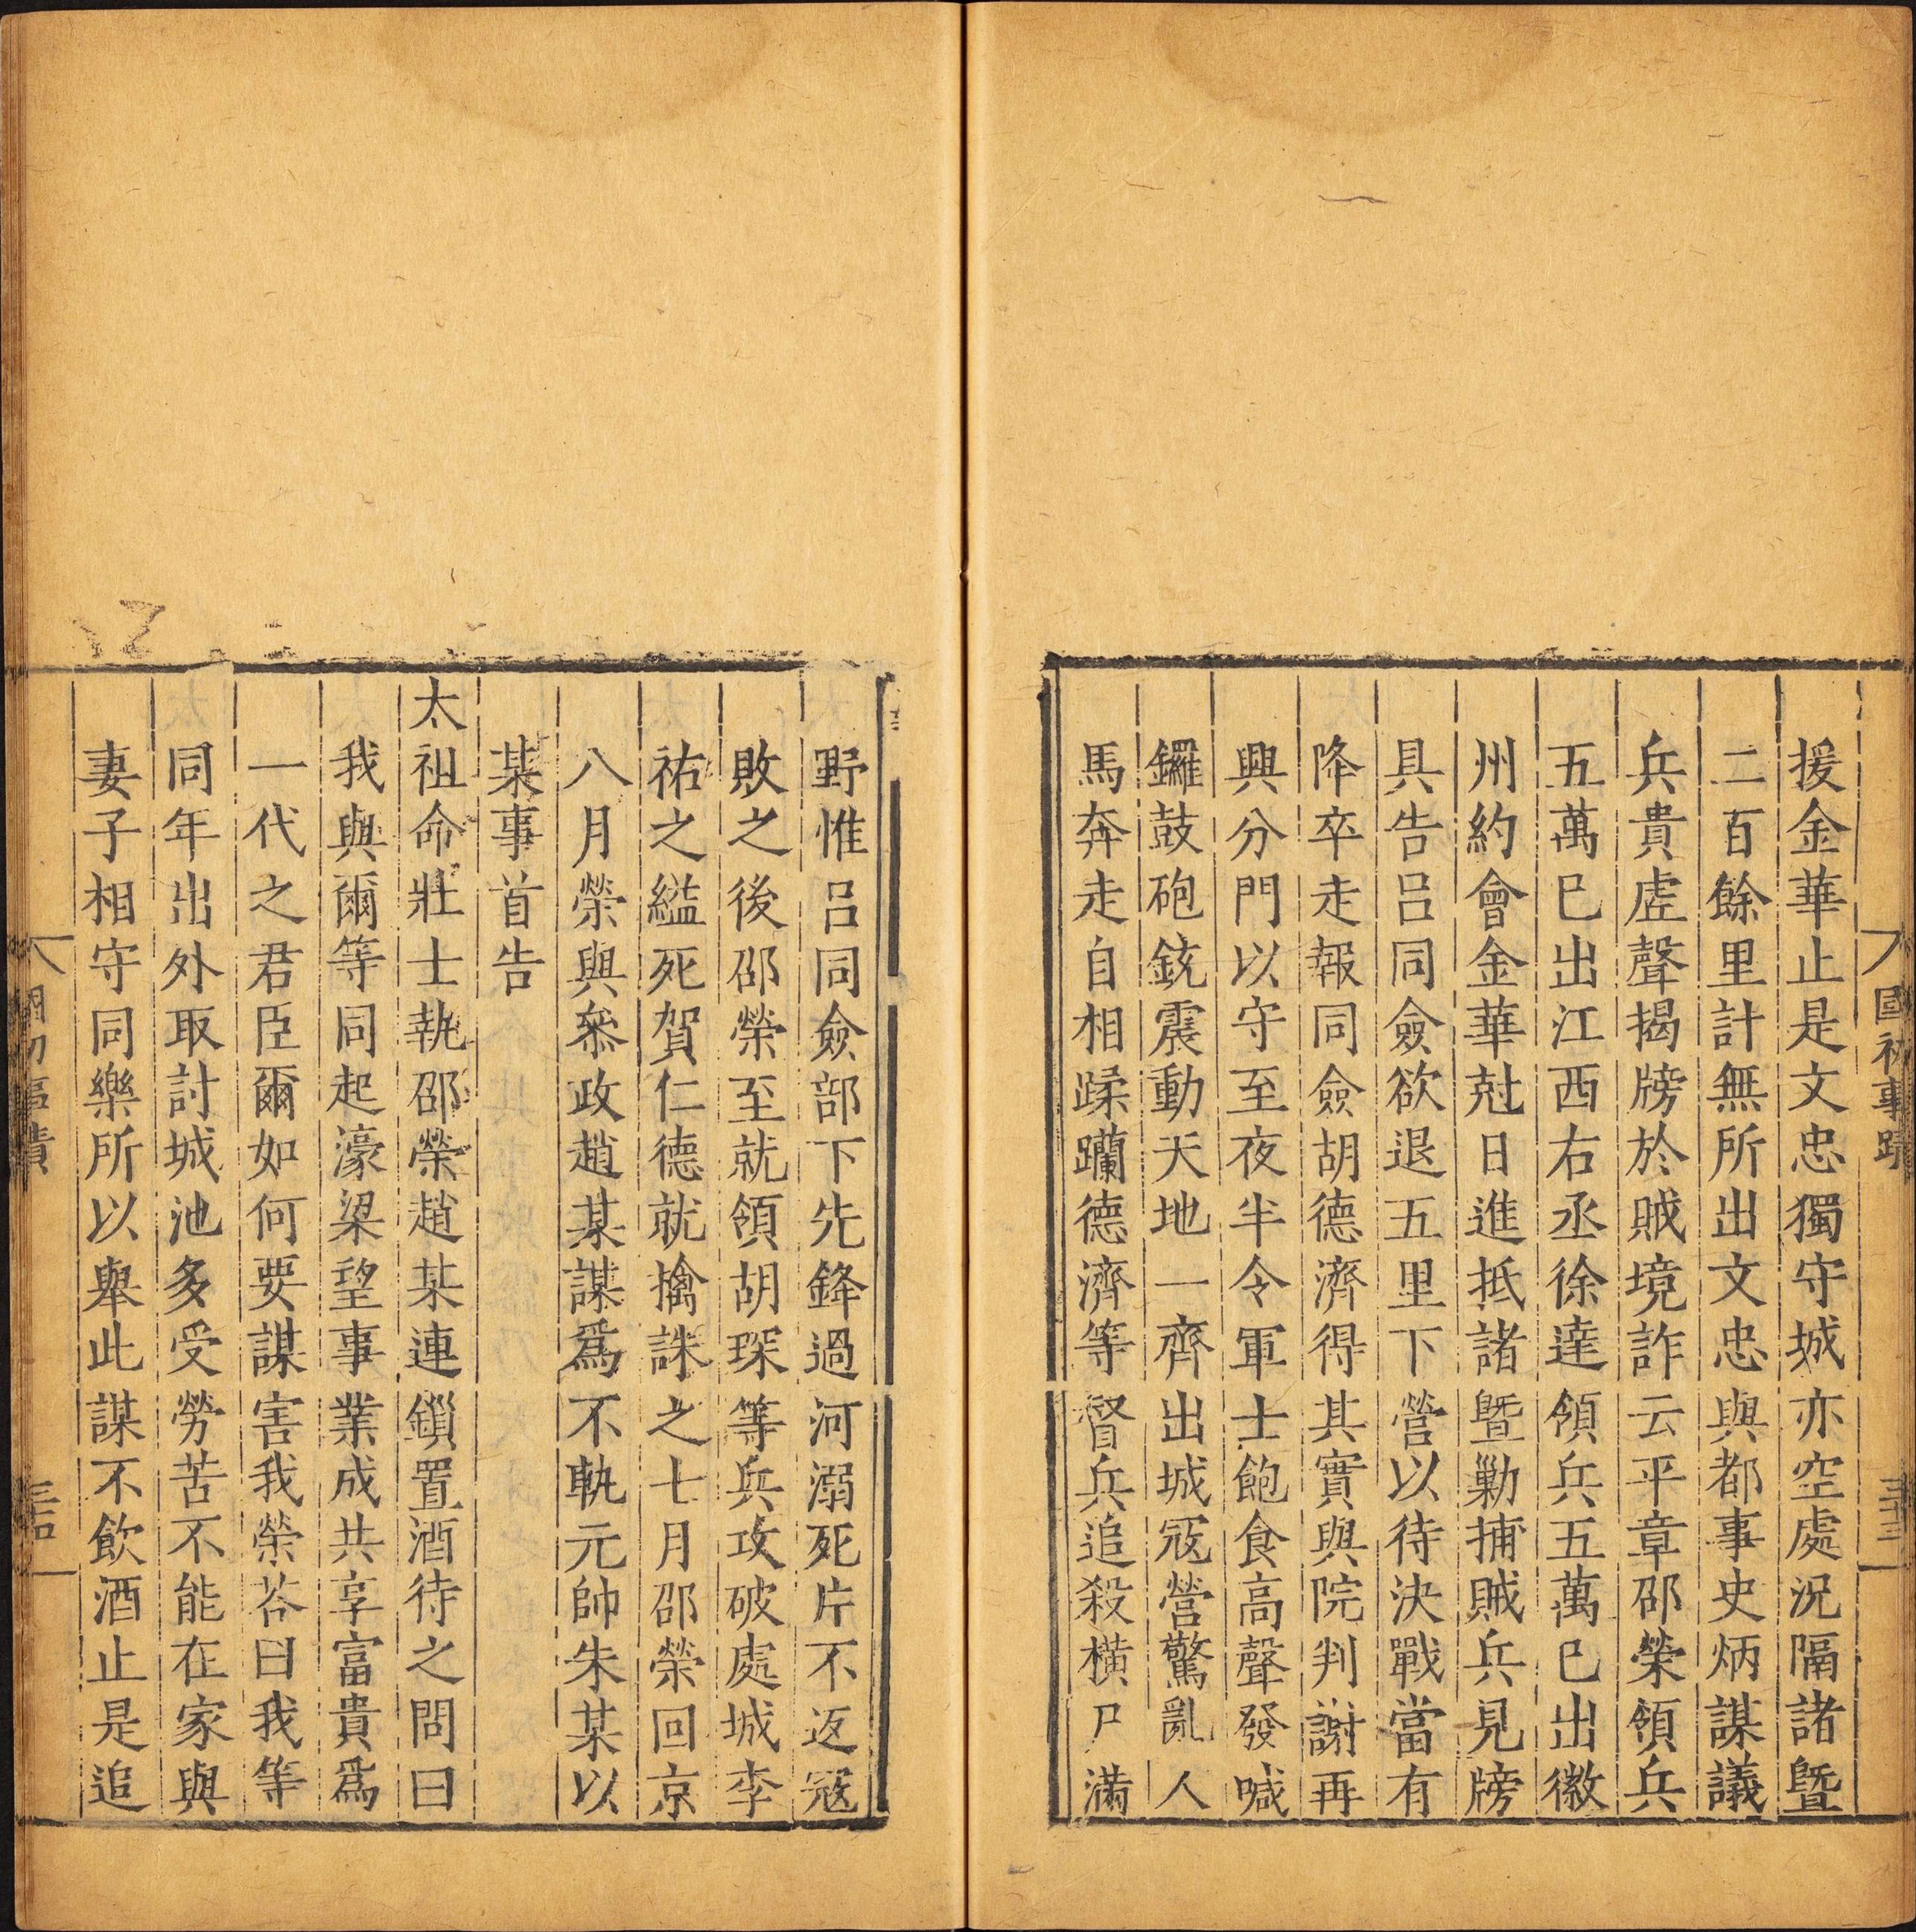 國初事蹟
三十三
援金華止是文忠獨守城亦空處況隔諸暨
二百餘里計無所出文忠與都事史炳謀議
兵貴虛聲揭牓於賊境詐云平章邵榮領兵
五萬已出江西右丞徐達領兵五萬已出徽
州約會金華尅日進抵諸暨勦捕賊兵見牓
具告吕同僉欲退五里下營以待決戰當有
降卒走報同僉胡德濟得其實與院判謝再
興分門以守至夜半令軍士飽食高聲發喊
鑼鼓砲銃震動天地一齊出城冦營驚亂人
馬奔走自相蹂躪德濟等督兵追殺橫尸滿
野惟吕同僉部下先鋒過河溺死片不返冦
敗之後邵榮至就領胡琛等兵攻破處城李
祐之縊死賀仁德就擒誅之七月邵榮回京
八月榮與叅政趙某謀爲不軌元帥朱某以
某事首告
太祖命壯士執邵榮趙某連鎖置酒待之問曰
我與爾等同起濠梁望事業成共享富貴爲
一代之君臣爾如何要謀害我榮荅曰我等
同年出外取討城池多受勞苦不能在家與
妻子相守同樂所以舉此謀不飲酒止是追